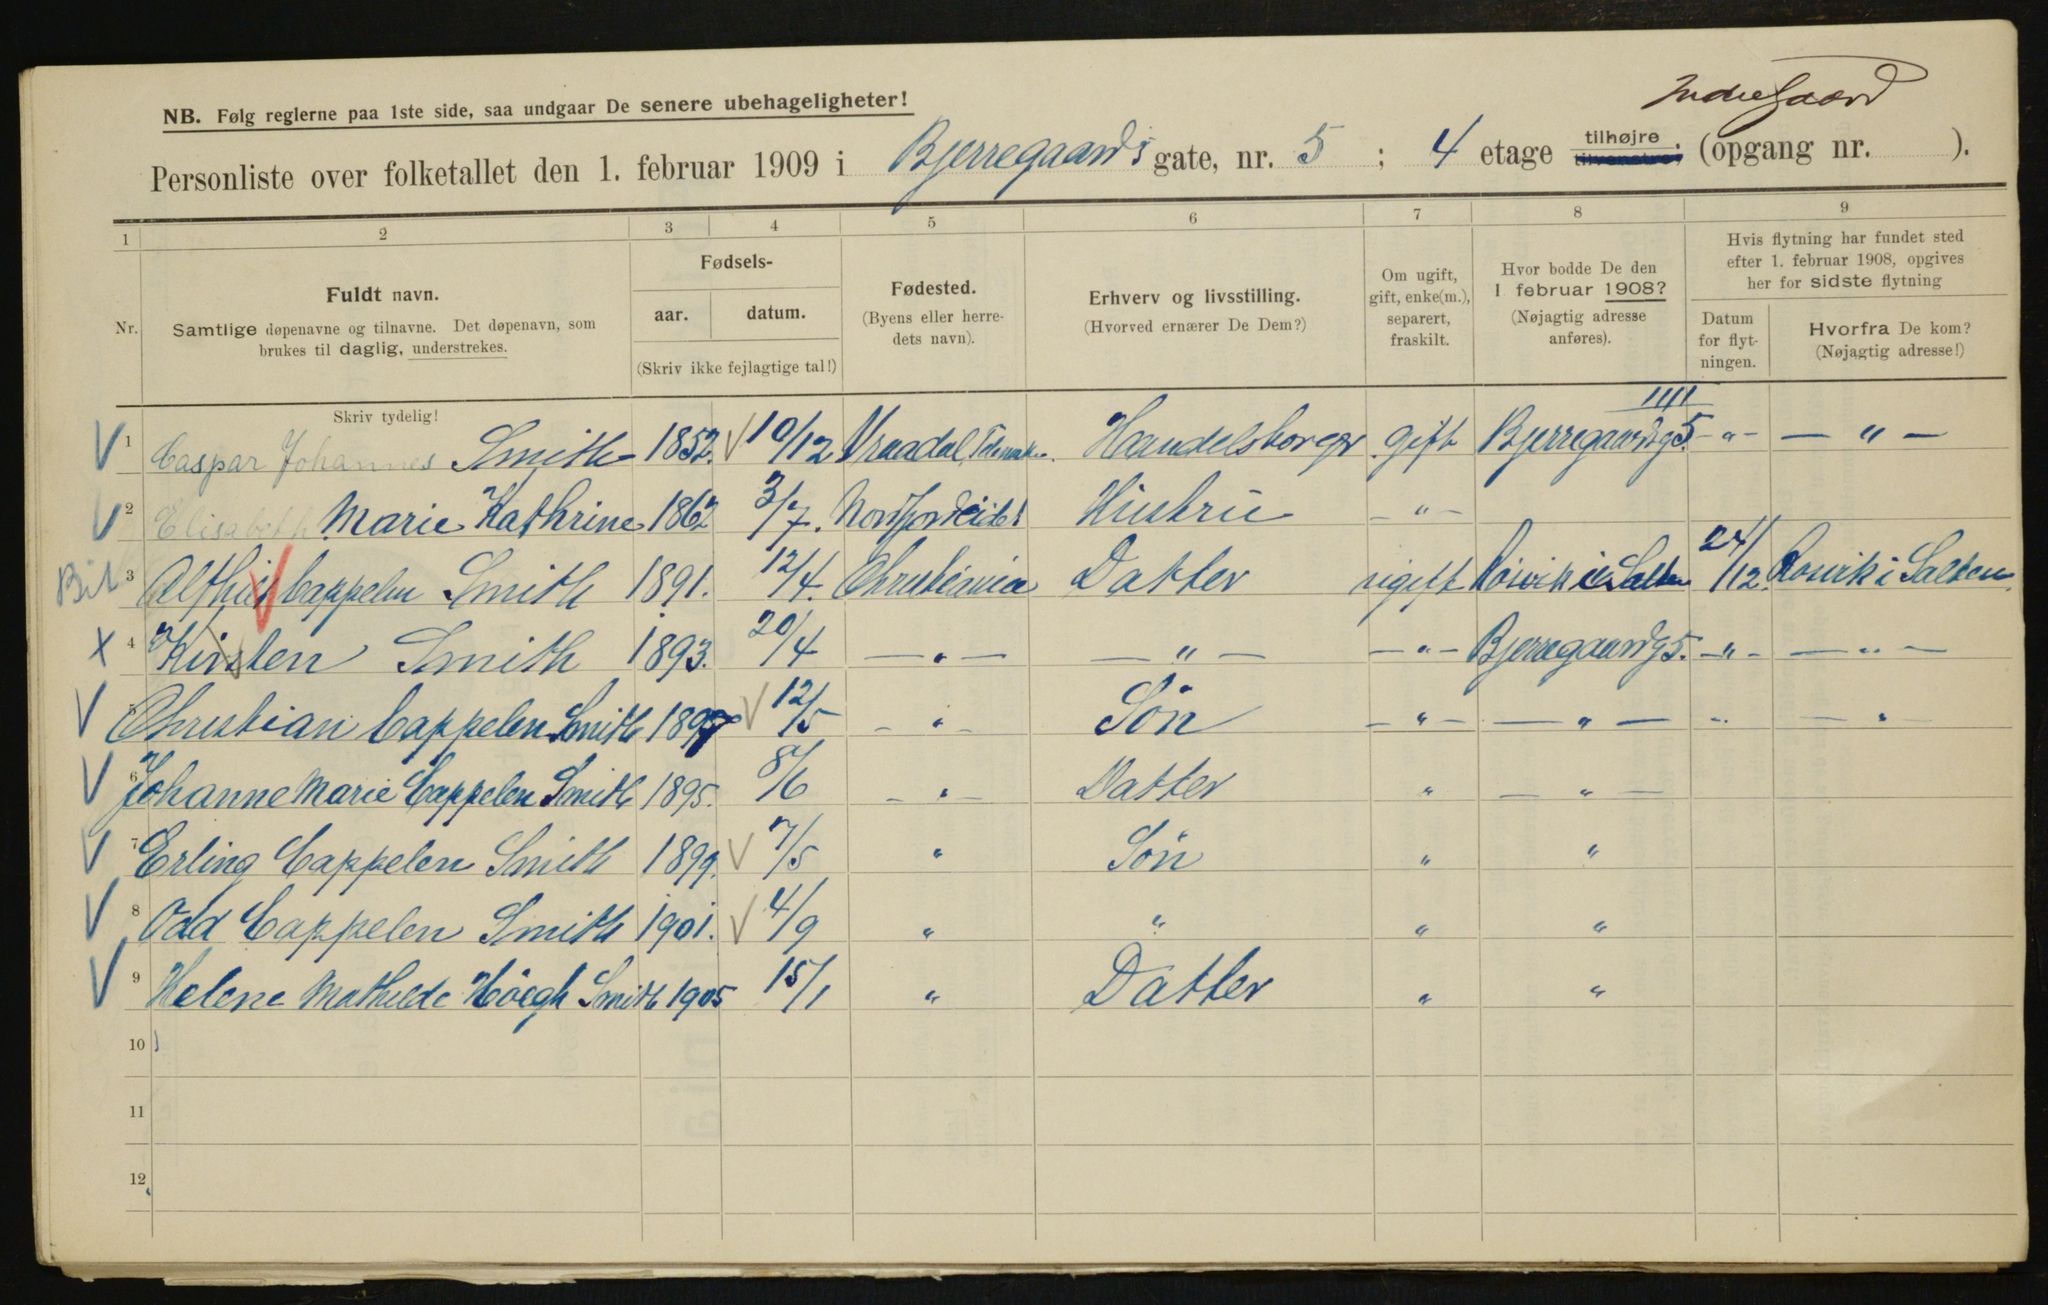 Indregaard
NB. Følg reglerne paa 1ste side, saa undgaar De senere ubehageligheter!
Personliste over folketallet den 1. februar 1909 i Bjerregaards gate, nr. 5 ; 4 etage tilhøjre tilvenstre, (opgang nr. ).
1 2 3 4 5 6 7 8 9
Nr. Fuldt navn. Samtlige døpenavne og tilnavne. Det døpenavn, som brukes til daglig, understrekes.
Fødsels- aar. datum. (Skriv ikke fejlagtige tal!)
Fødested. (Byens eller herredets navn).
Erhverv og livsstilling. (Hvorved ernærer De Dem?)
Om ugift, gift, enke(m.), separert, fraskilt.
Hvor bodde De den 1 februar 1908? (Nøjagtig adresse anføres).
Hvis flytning har fundet sted efter 1. februar 1908, opgives her for sidste flytning
Datum for flytningen. Hvorfra De kom? (Nøjagtig adresse!)
Skriv tydelig!
V 1 Caspar Johannes Smith 1852. V 10/12 Vraadal, Handelsborger gift Bjerregaardsg 5. -"- — " —
V 2 Elisabeth Marie Kathrine 1862 3/7. Nordfjordeidet Hustru -"-
3 Cappelen Smith 1891. 12/4. Christiania Datter ugift Røsvik i Salten 24/12. Røsvik i Salten.
x 4 Kirsten Smith 1893. 20/4 — " — — " — -"- Bjerregaardsg 5. -"- — " —
V 5 Christian Cappelen Smith 1897 V 12/5 - " - Søn -"- — " — -"- — " —
V 6 Johanne Marie Cappelen Smith 1895. 8/6 - " - Datter " — " —
V 7 Erling Cappelen Smith 1899. V 7/5 " Søn " "
V 8 Odd Cappelen Smith 1901. V 4/9 " " " "
V 9 Helene Mathilde Höegh Smith 1905 15/1 " Datter " "
10
11
12